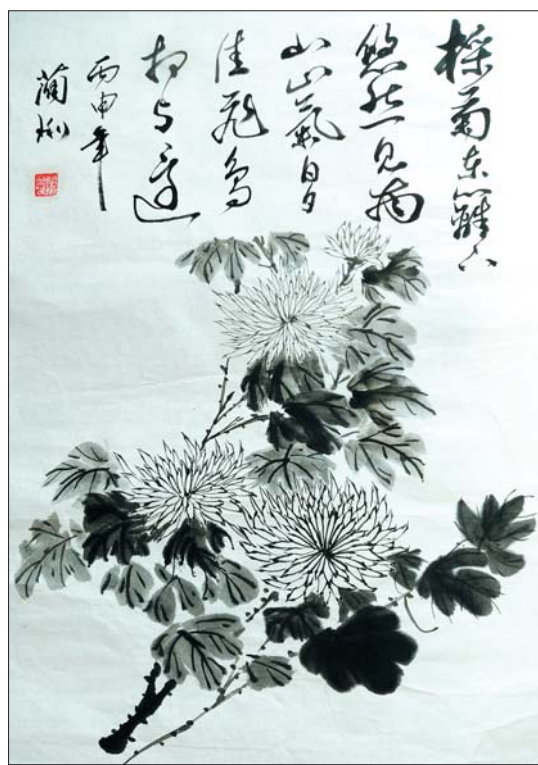 採菊东籬下
悠然见南
山山氣日夕
佳飛鸟
相与還
丙申年
蘭